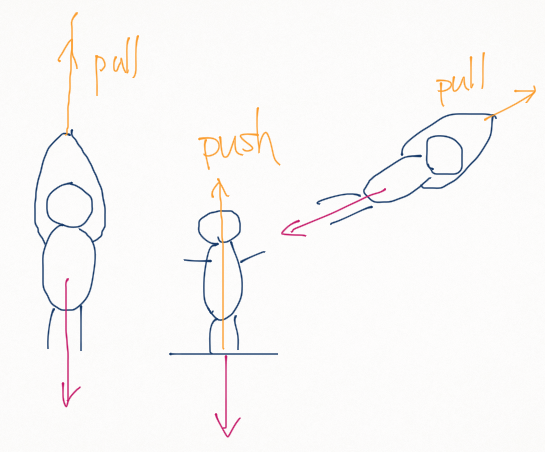 pull
push
pull